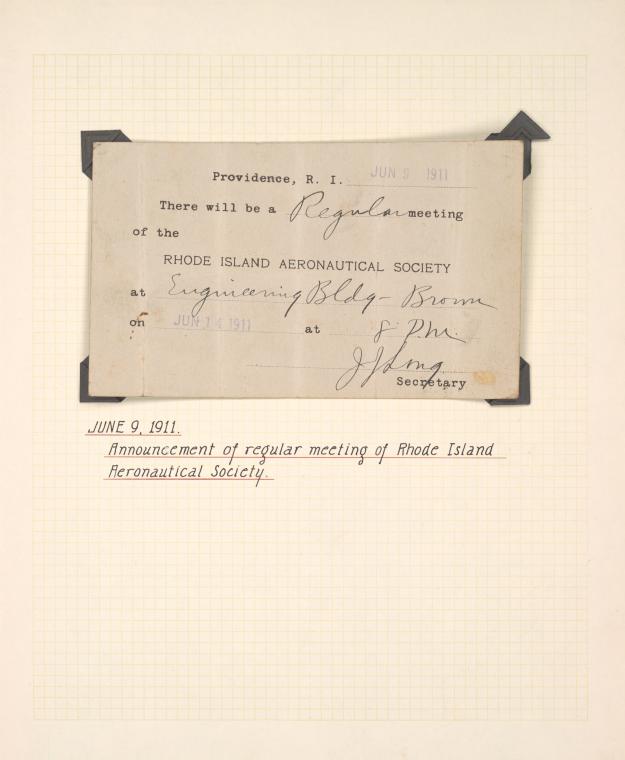 Providence, R. I. JUN 9 1911
There will be a Regular meeting
of the
RHODE ISLAND AERONAUTICAL SOCIETY
at Engineering Bldg - Brown
on JUN 14 1911 at 8 P.M.
J J Long
Secretary
JUNE 9, 1911.
Announcement of regular meeting of Rhode Island
Aeronautical Society.